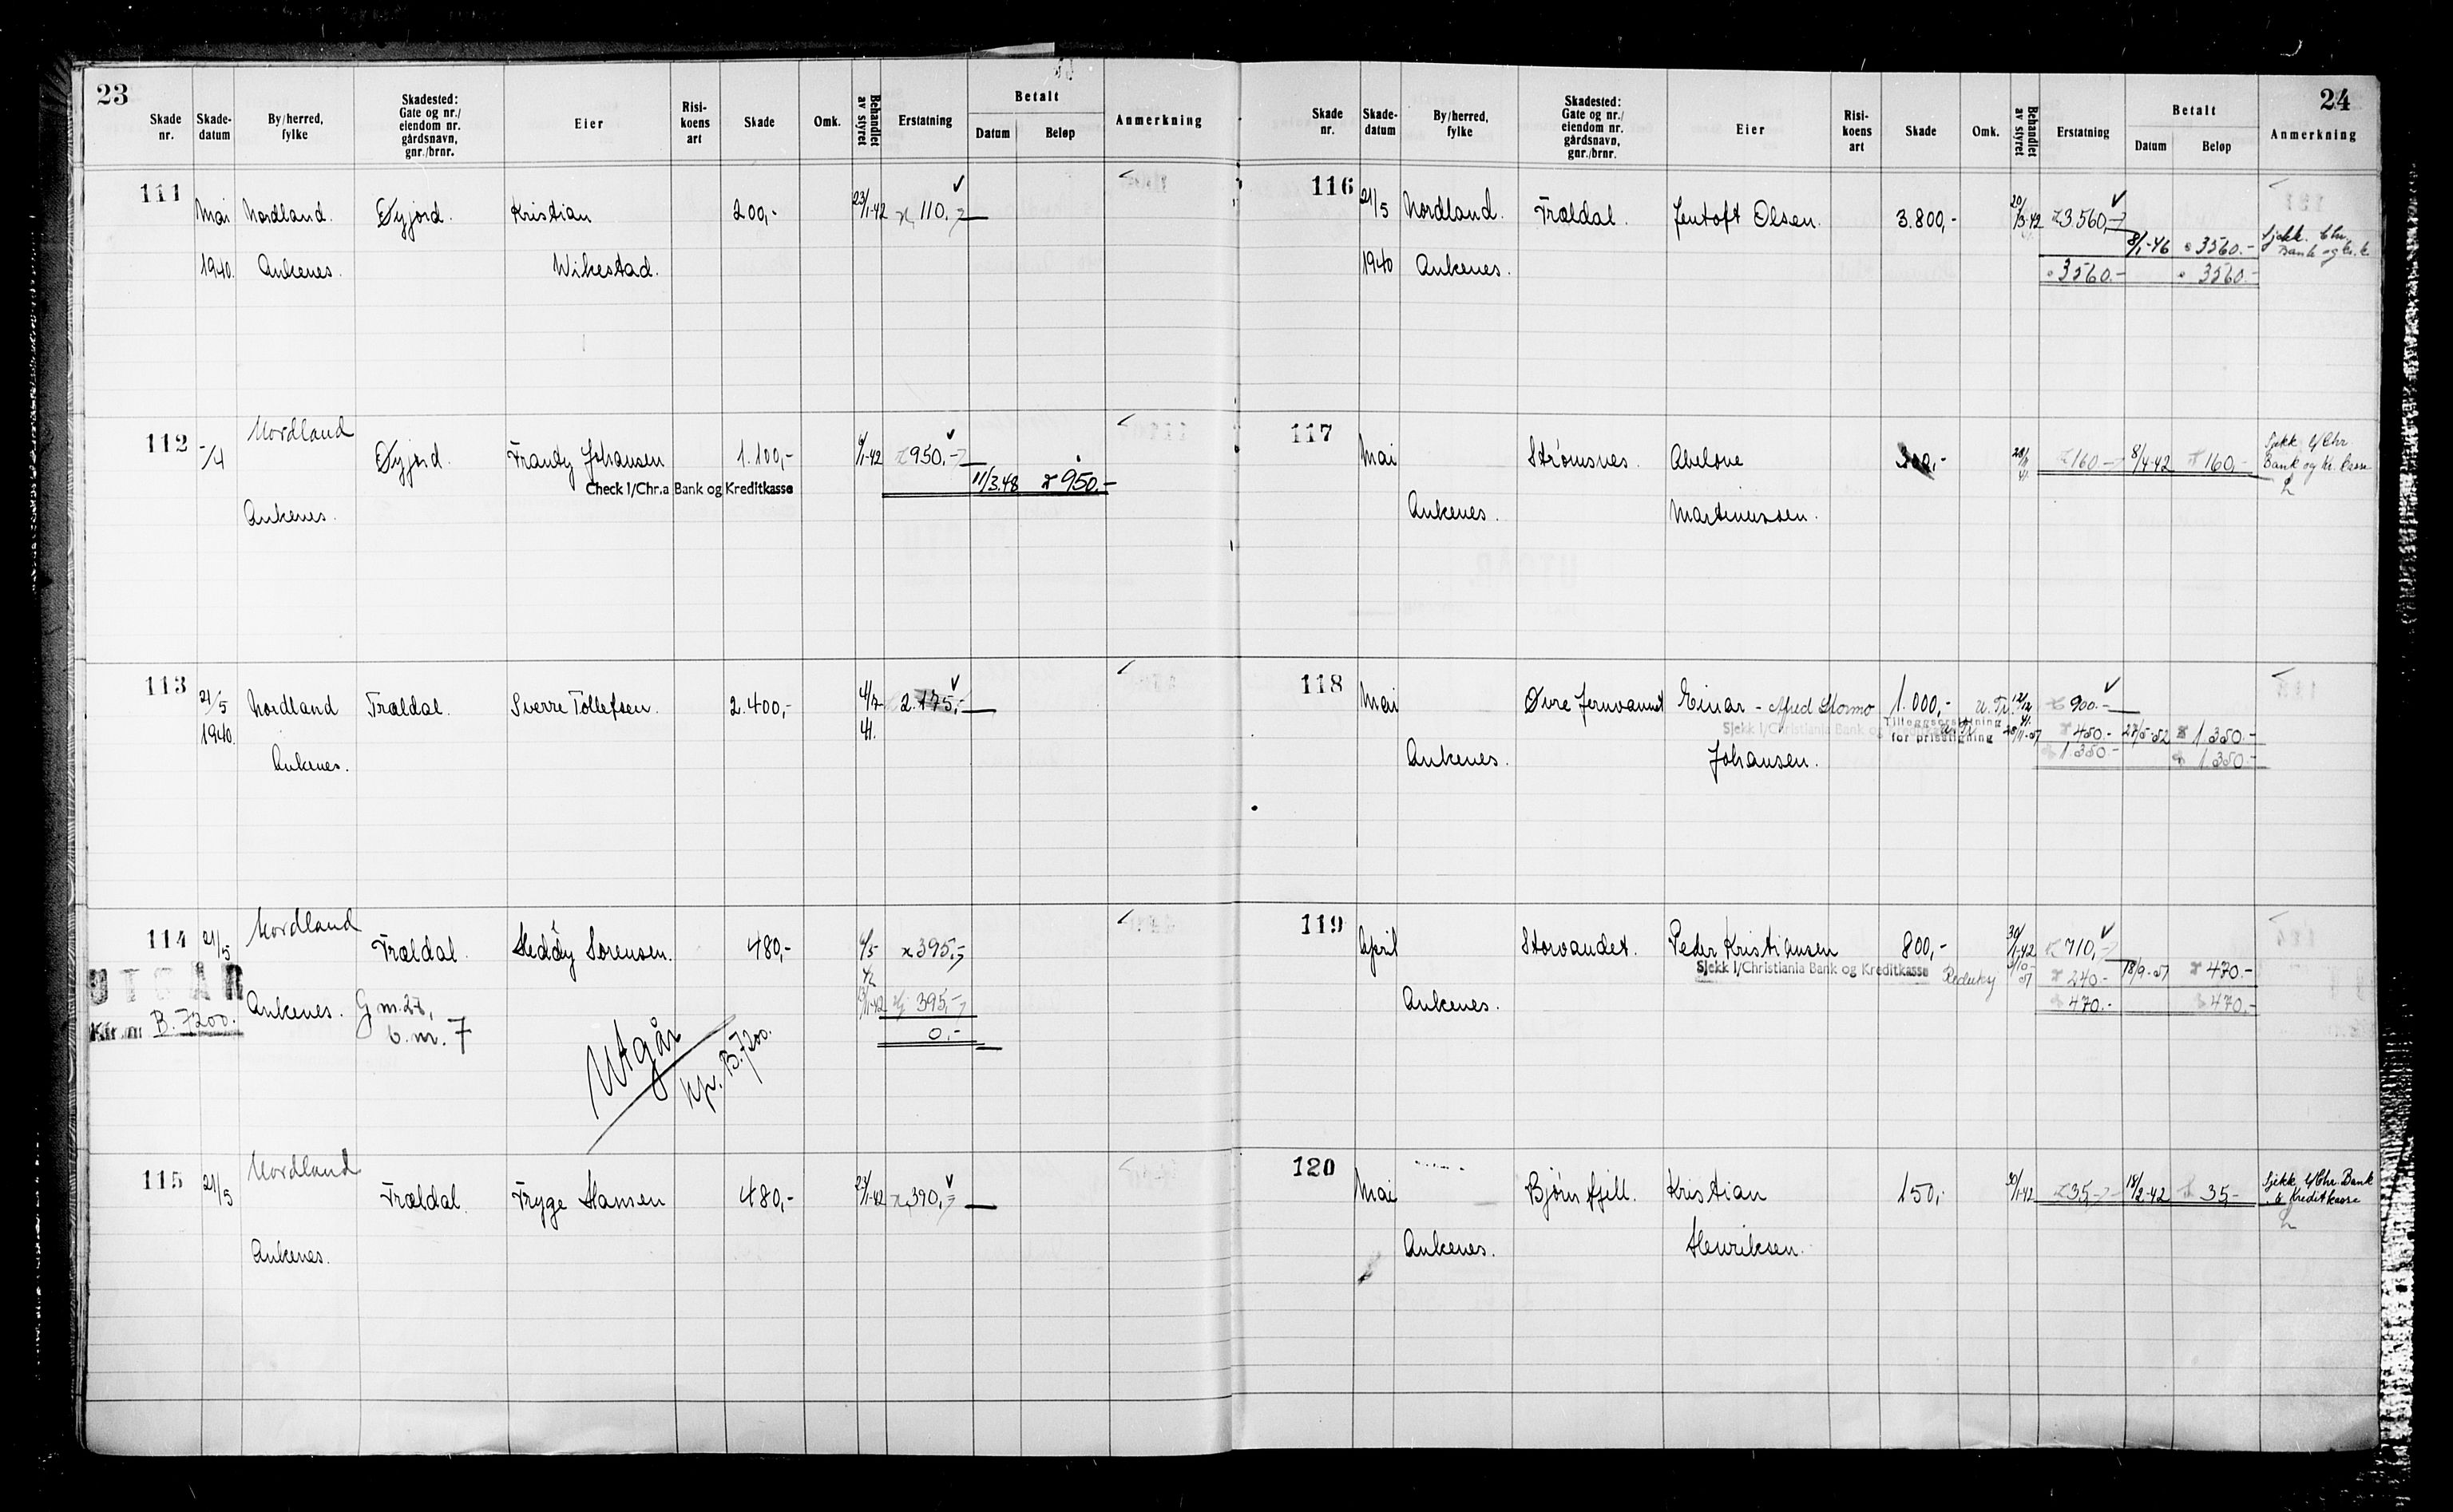 23
Skade nr.
Skade-datum
By/herred, fylke
Skadested: Gate og nr./ eiendom nr. gårdsnavn, gnr./brnr.
Eier
Risi-koens art
Skade
Omk.
Behandlet av styret
Erstatning
Betalt
Datum
Beløp
Anmerkning
111
Mai Nordland. Øyjord. Kristian 200,- 23/1-42 110,-
1940. Ankenes. Wikestad.
112
Nordland
-/4 Øyjord. Frantz Johansen 1.100,- 9/1-42 950,-
Check i/Chr.a Bank og Kreditkasse 11/3.48 950.-
Ankenes.
113
21/5 Nordland Trældal. Sverre Tollefsen. 2.400,- 4/7 2.175,-
1940. 41.
Ankenes.
114
Nordland
21/5 Trældal. Heddy Sørensen. 480,- 395,-
UTGÅR
Ankenes. G.nr. 27, 1-42 395,-
Kfr. nr. B.7200. b.nr. 7 0,-
Utgår
Kfr. B.7200.
115
Nordland
21/5 Trældal. Tryge Hansen 480,- 23/1-42 390,-
Ankenes.
24
Skade nr.
Skade-datum
By/herred, fylke
Skadested: Gate og nr./ eiendom nr. gårdsnavn, gnr./brnr.
Eier
Risi-koens art
Skade
Omk.
Behandlet av styret
Erstatning
Betalt
Datum
Beløp
Anmerkning
116
21/5 Nordland. Trældal. Jentoft Olsen. 3.800,- 20/3-42 3.560,-
8/1-46 3560.- Sjekk. Chr. Bank og Kr.k.
1940 Ankenes. 3560.- 3560.-
117
Mai Strømsnes. Abelone 300,- 160,- 8/4-42 160,- Sjekk i/Chr. Bank og Kr. kasse
Ankenes. Martinussen.
118
Mai Øvre Jernvannet Einar - Alfred Stormo 1.000,- 12/12 41. 900.-
Sjekk i/Christiania Bank og Kreditkasse Tilleggserstatning for prisstigning 28/11-51 450.- 27/5-52 1.350.-
Ankenes. Johansen. 1350.- 1.350.-
119
April Storvandet. Peder Kristiansen 800,- 30/1-42 710,-
Sjekk i/Christiania Bank og Kreditkasse 240.- 18/9-51 470.-
Ankenes. 470.- 470.-
120
Mai Bjørnfjell. Kristian 150,- 30/1-42 35,- 18/2-42 35,- Sjekk i/Chr. Bank & Kreditkasse
Ankenes. Henriksen.